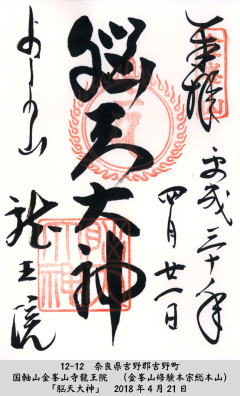 奉拝
平成三十年
四月廿一日
脳天大神
よしの山
龍王院
12-12　奈良県吉野郡吉野町
国軸山金峯山寺龍王院　（金峯山修験本宗総本山）
「脳天大神」　2018年4月21日